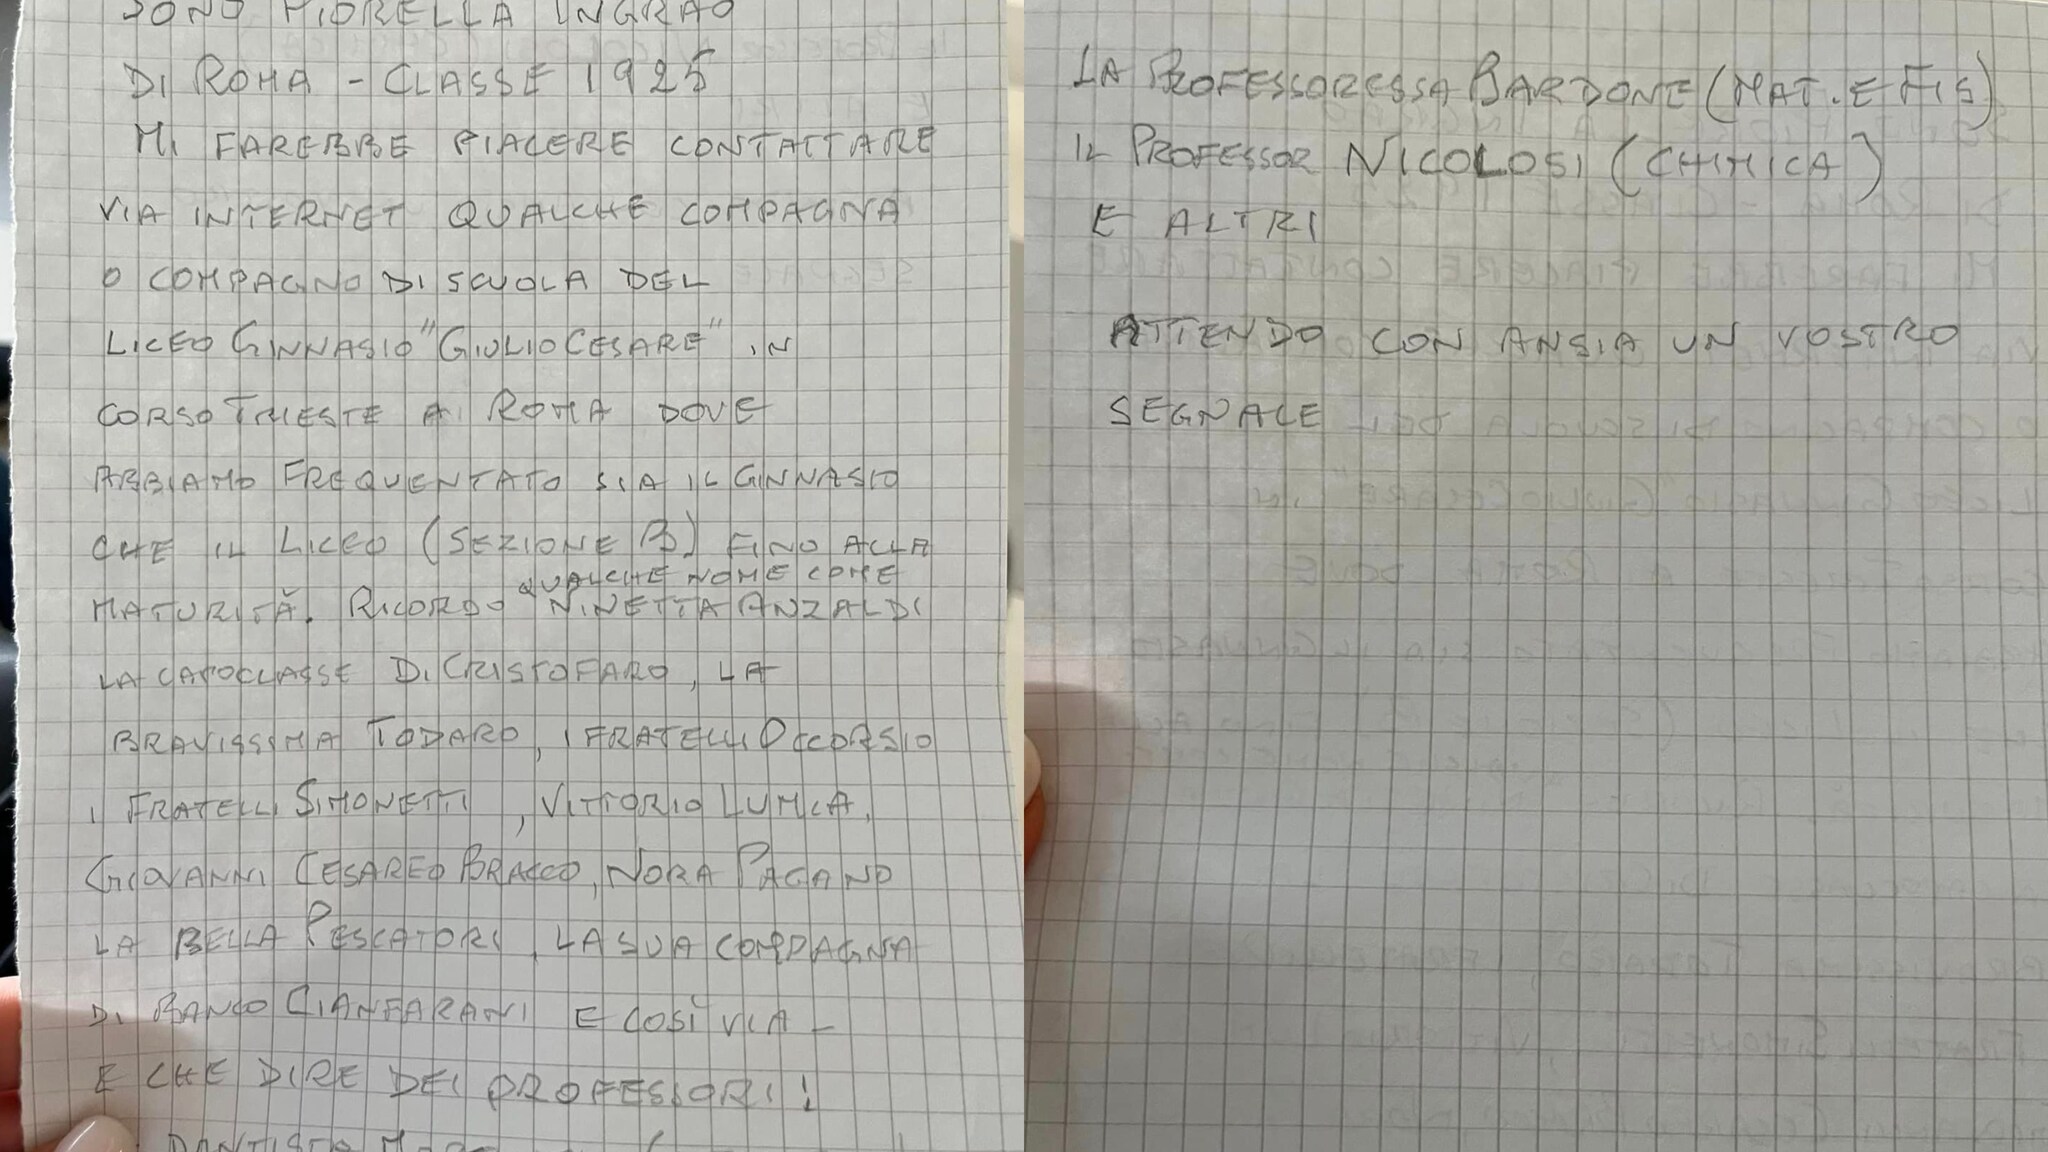 SONO FIORELLA INGRAO
DI ROMA - CLASSE 1925
MI FAREBBE PIACERE CONTATTARE
VIA INTERNET QUALCHE COMPAGNA
O COMPAGNO DI SCUOLA DEL
LICEO GINNASIO "GIULIO CESARE" IN
CORSO TRIESTE A ROMA DOVE
ABBIAMO FREQUENTATO SIA IL GINNASIO
CHE IL LICEO (SEZIONE B) FINO ALLA
MATURITÀ. RICORDO QUALCHE NOME COME NINETTA ANZALDI
LA CAPOCLASSE DI CRISTOFARO, LA
BRAVISSIMA TODARO, I FRATELLI OCCORSIO
I FRATELLI SIMONETTI, VITTORIO LUMIA,
GIOVANNI CESAREO BRACCO, NORA PAGANO
LA BELLA PESCATORI, LA SUA COMPAGNA
DI BANCO CIANFARANI E COSÌ VIA -
E CHE DIRE DEI PROFESSORI!
LA PROFESSORESSA BARDONE (MAT. E FIS)
IL PROFESSOR NICOLOSI (CHIMICA)
E ALTRI
ATTENDO CON ANSIA UN VOSTRO
SEGNALE